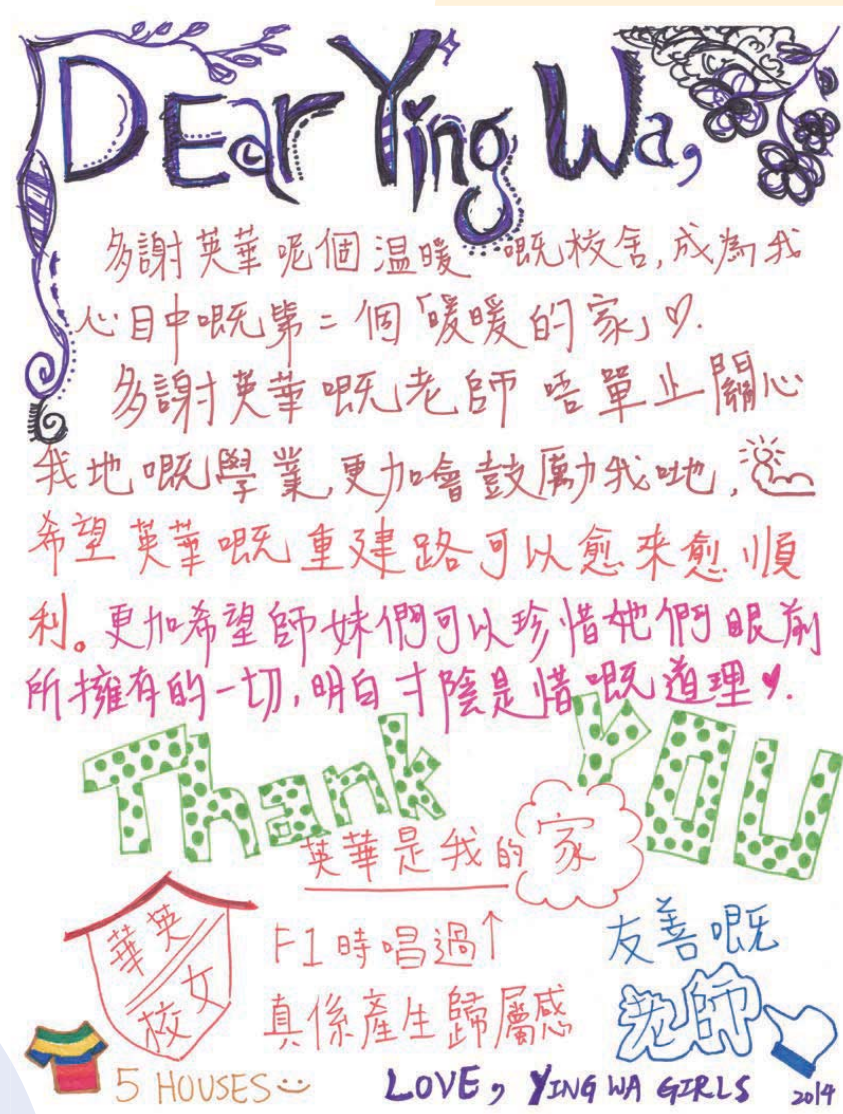 DEar Ying Wa,
多謝英華呢個溫暖嘅校舍,成為我
心目中嘅第二個「暖暖的家」♡.
多謝英華嘅老師唔單止關心
我地嘅學業,更加會鼓勵我哋,
希望英華嘅重建路可以愈來愈順
利。更加希望師妹們可以珍惜她們眼前
所擁有的一切,明白寸陰是惜嘅道理♥.
Thank YOU
英華是我的家
英華
女校
F1時唱過↑
真係產生歸屬感
友善嘅
老師
5 HOUSES
LOVE, YING WA GIRLS 2014